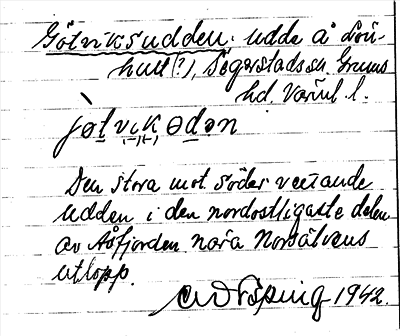 Götviksudden. Udde å
hall (?), Segerstads sn. Grums
hd. Värml. l.
jøtvikødən
Den stora mot söder vettande
udden i den nordostligaste delen
av Åsfjorden nära Norsälvens
utlopp.
1942.